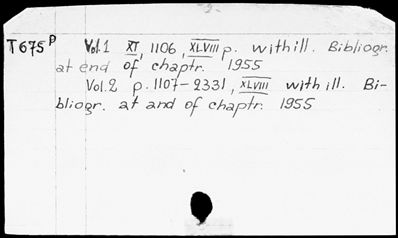 -2-
T675p Vol.1 XI, 1106, XLVIII p. with ill. Bibliogr.
at end of chaptr. 1955
Vol.2 p. 1107-2331, XLVIII with ill. Bi-
bliogr. at and of chaptr. 1955